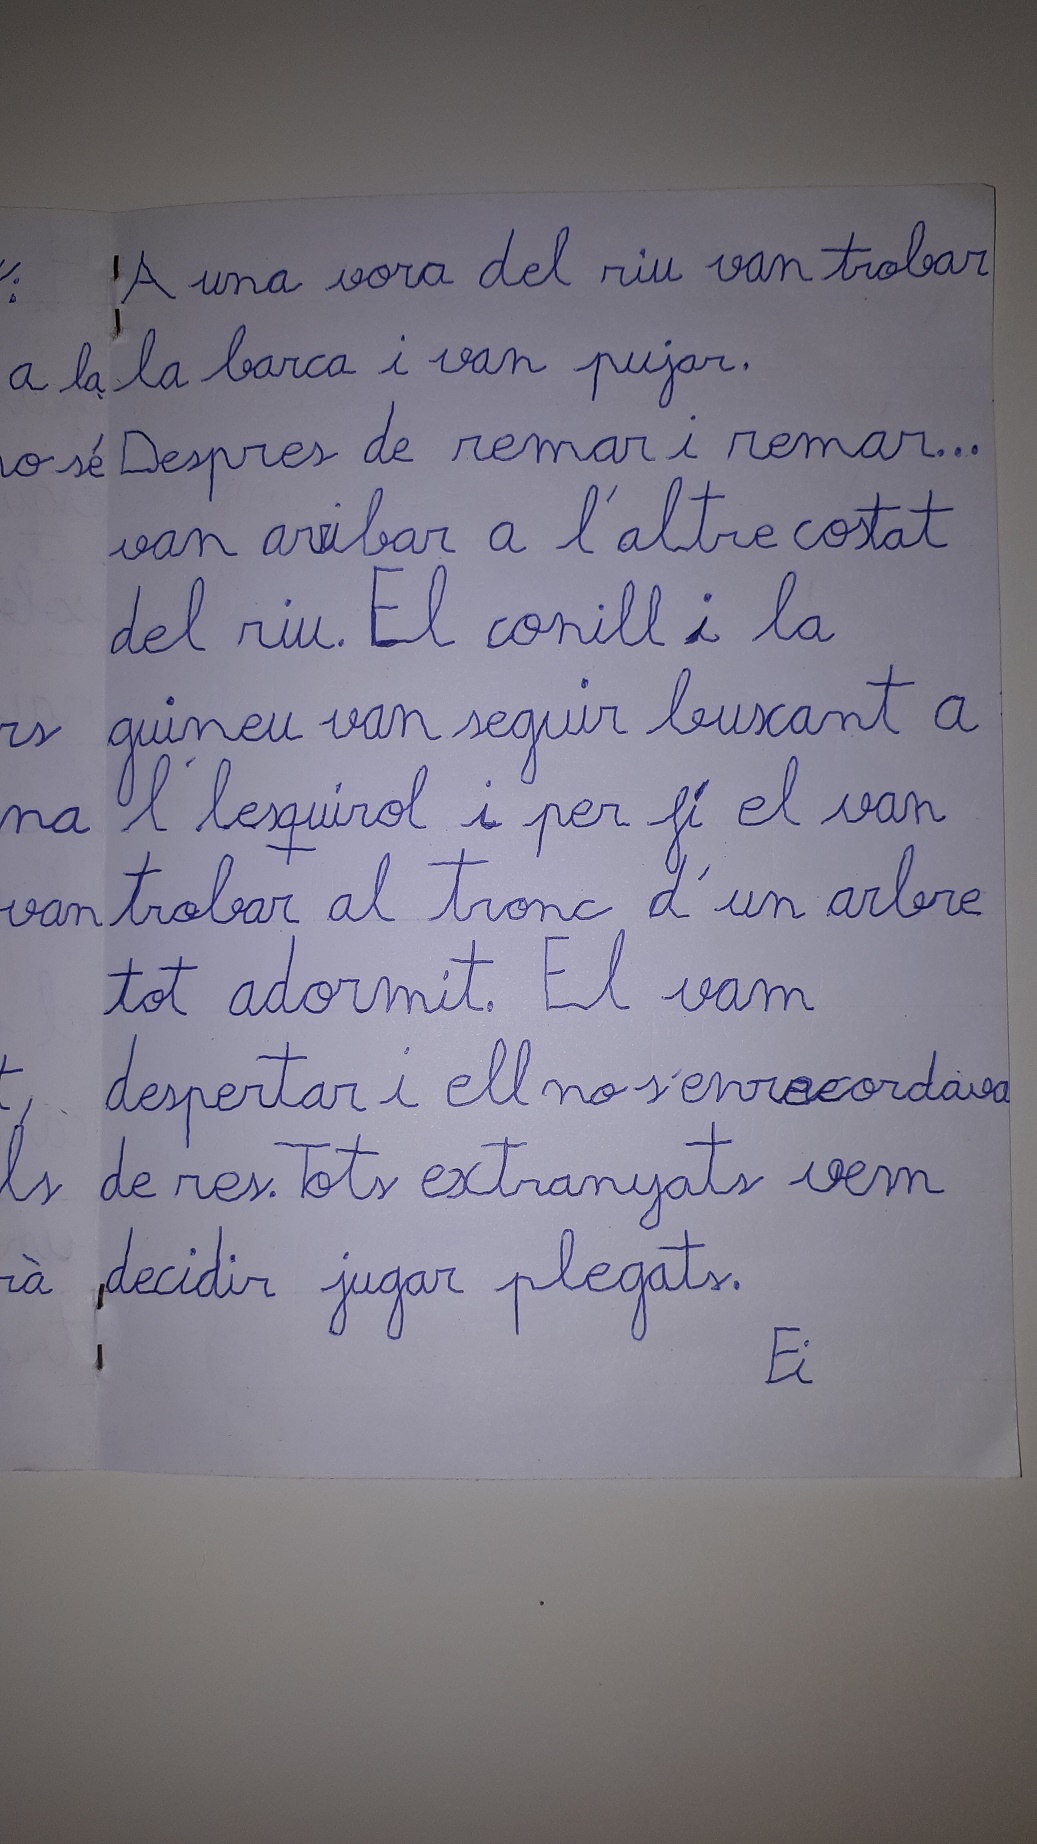 A una vora del riu van trobar
a la
la barca i van pujar.
no sé
Despres de remar i remar...
van arribar a l'altre costat
del riu. El conill i la
rs
guineu van seguir buscant a
na
l'lesquirol i per fí el van
van
trobar al tronc d'un arbre
tot adormit. El vam
t,
despertar i ell no s'enrecordava
ls
de res. Tots extranyats vem
rà
decidir jugar plegats.
Ei